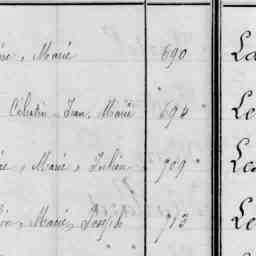 Marie 690 La
Célestin Jean Marie 694 Le
Marie Julien 709 Le
Marie Joseph 713 Le